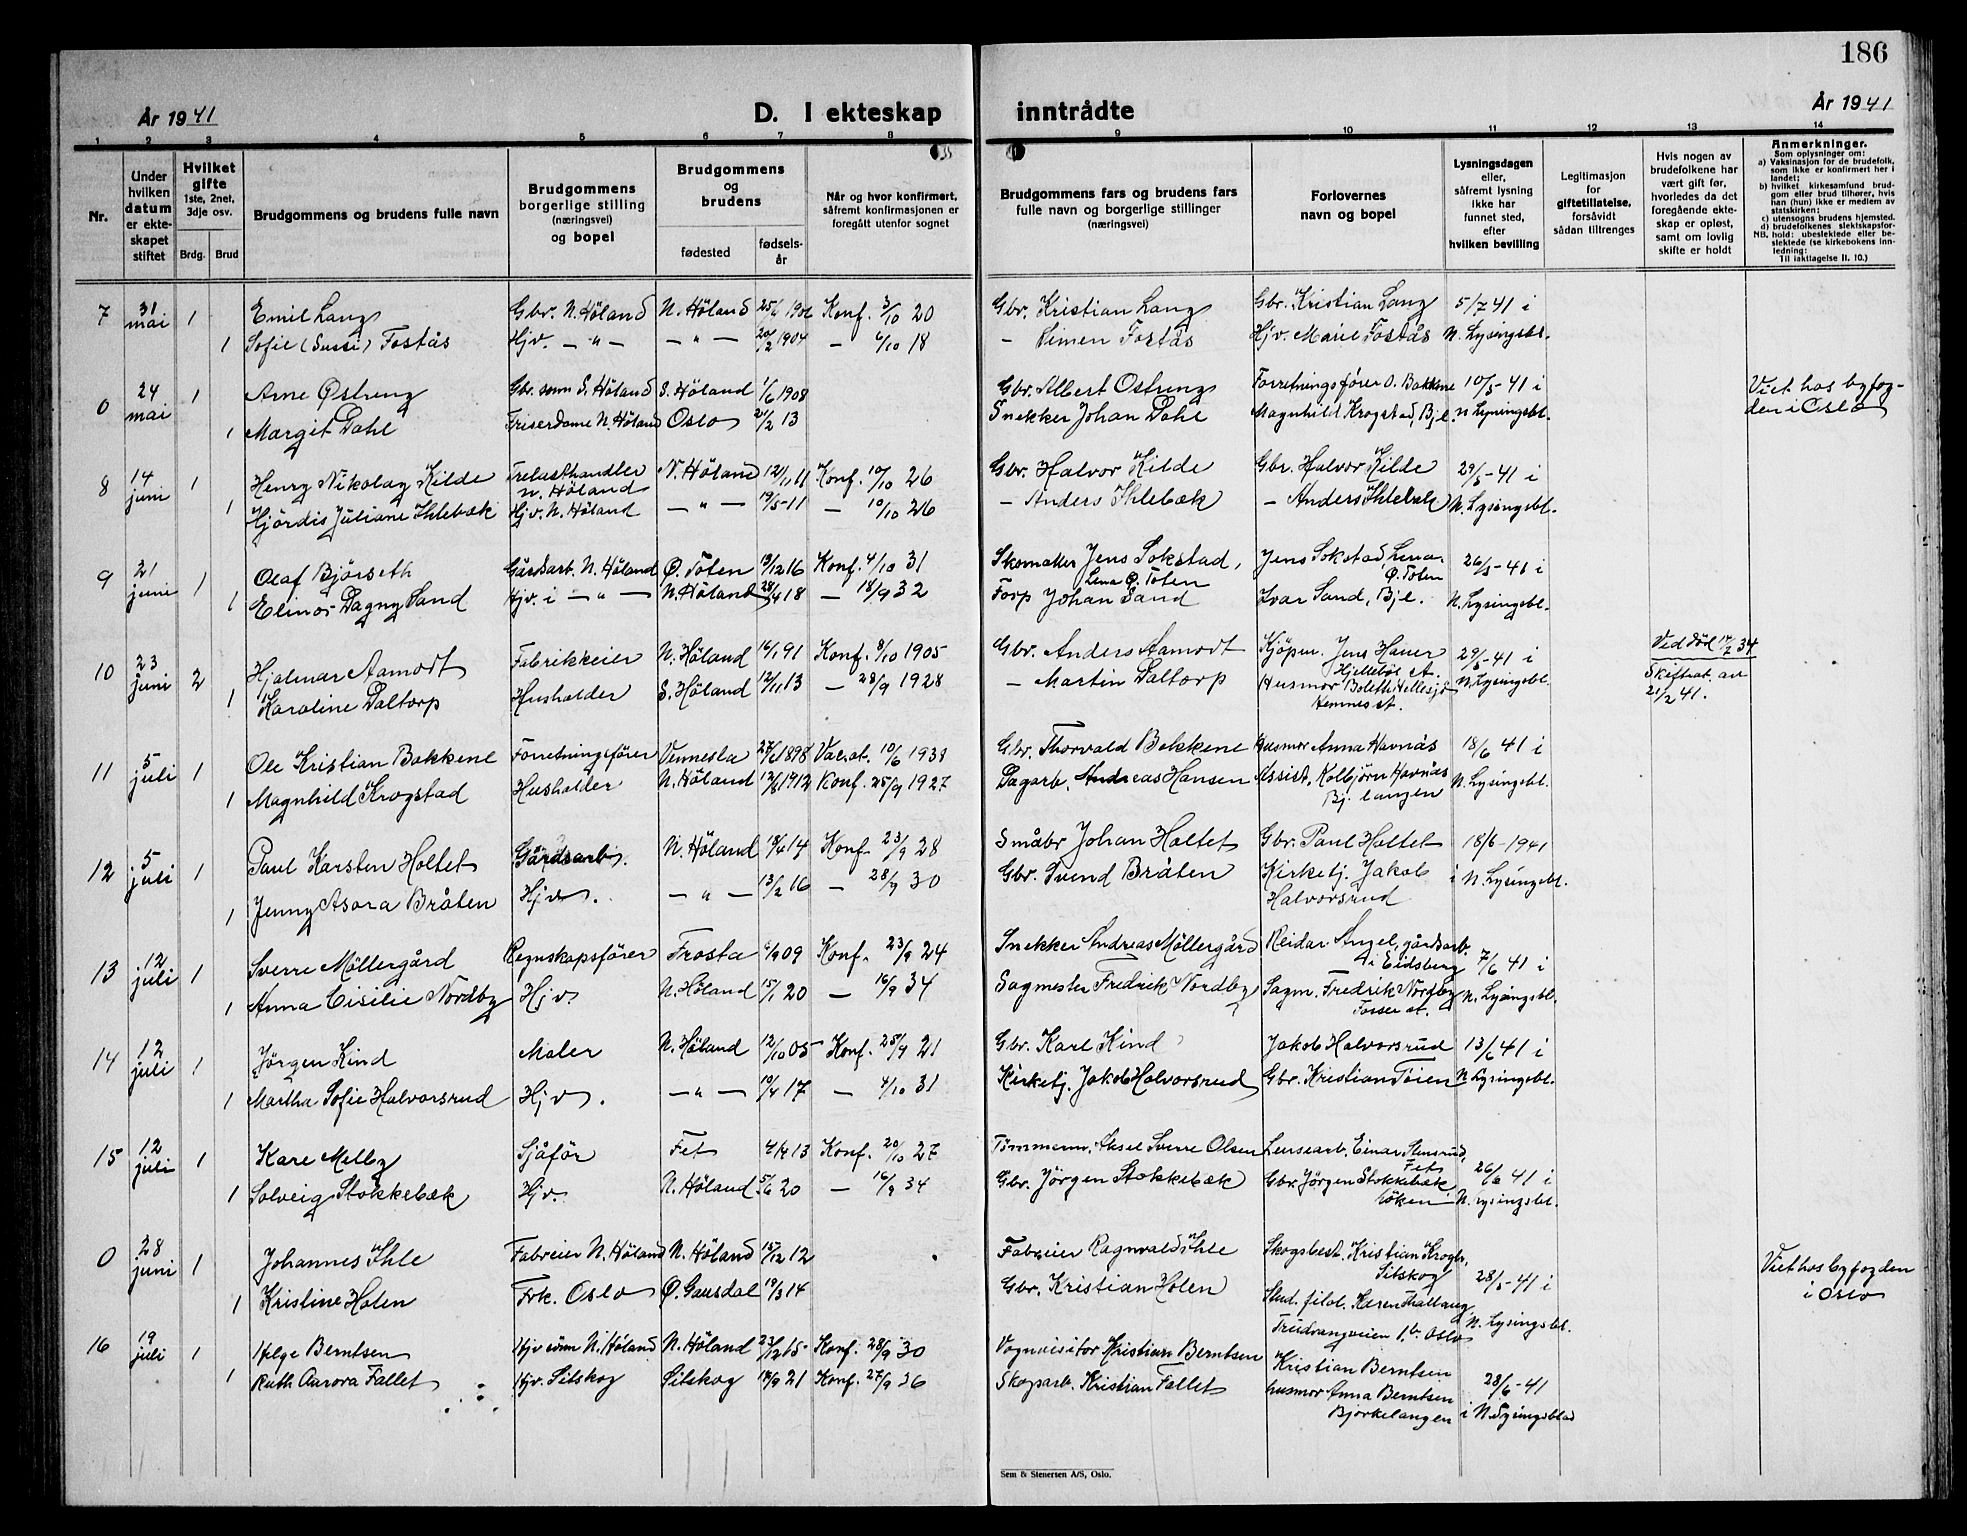 186
År 1941
D. I ekteskap inntrådte
År 1941
1 2 3 4 5 6 7 8 9 10 11 12 13 14
Nr.
Under hvilken datum er ekteskapet stiftet
Hvilket gifte 1ste, 2net, 3dje osv.
Brdg. Brud
Brudgommens og brudens fulle navn
Brudgommens borgerlige stilling (næringsvei) og bopel
Brudgommens og brudens
fødested
fødselsår
Når og hvor konfirmert, såfremt konfirmasjonen er foregått utenfor sognet
Brudgommens fars og brudens fars fulle navn og borgerlige stillinger (næringsvei)
Forlovernes navn og bopel
Lysningsdagen eller, såfremt lysning ikke har funnet sted, efter hvilken bevilling
Legitimasjon for giftetillatelse, forsåvidt sådan tiltrenges
Hvis nogen av brudefolkene har vært gift før, hvorledes da det foregående ekteskap er opløst, samt om lovlig skifte er holdt
Anmerkninger.
Som oplysninger om:
a) Vaksinasjon for de brudefolk, som ikke er konfirmert her i landet;
b) hvilket kirkesamfund brudgom eller brud tilhører, hvis han (hun) ikke er medlem av statskirken;
c) utensogns brudens hjemsted.
d) brudefolkenes slektskapsforhold: ubeslektede eller beslektede (se kirkebokens innledning:
NB. Til iakttagelse II. 10.)
7 31 mai 1 Emil Lang Gbr. N. Höland N. Höland 1906 Konf. 3/10 20 Gbr. Kristian Lang Gbr. Kristian Lang 5/7 41 i
1 Sofie (Sussi) Fostås Hjv. — " — — " — 20/2 1904 — 6/10 18 — Simen Fostås Hjv. Marie Fostås N. Lysingsbl.
0 24 mai 1 Arne Østreng Gbr. sønn S. Höland S. Höland 1/6 1908 Gbr. Albert Ostreng Forretningsfører O. Bakkene 10/5-41 i Viet hos byfog-
1 Margit Dahl Friserdame N. Höland Oslo 21/2 13 Snekker Johan Dahl Magnhild Krogstad, Bjl. N. Lysningsbl. den i Oslo
8 14 juni 1 Henry Nikolay Kilde Trelasthandler N. Höland N. Höland 12/1 11 Konf. 10/10 26 Gbr. Halvor Kilde Gbr. Halvor Kilde 29/5-41 i
1 Hjördis Juliane Ihlebæk Hjv. N. Höland — " — 19/5-11 — 10/10 26 — Anders Ihlebæk — Anders Ihlebæk N. Lysingsbl.
9 21 juni 1 Olaf Bjørseth Gårdsarb. N. Höland Ø. Toten 19/12 16 Konf. 4/10 31 Skomaker Jens Sokstad, Lena Ø. Toten Jens Sokstad, Lena Ø. Toten 26/5-41 i
1 Elinor Dagny Sand Hjv. i — " — N. Höland 28/4 18 — 18/9 32 Forp Johan Sand Ivar Sand, Bjl. N. Lysingsbl.
10 23 juni 2 Hjalmar Aamodt Fabrikkeier N. Höland 16/1 91 Konf. 8/10 1905 Gbr. Anders Aamodt Kjöpm. Jens Hauer Hjellebøl st. 29/5-41 i Ved död 14/2 34
1 Karoline Daltorp Husholder S. Höland 12/11 13 — 23/9 1928 — Martin Daltorp Husmor Boletthe Hellesjö Hemnes st. N. Lysingsbl. Skifteat. av 21/2 41.
11 5 juli 1 Ole Kristian Bakkene Forretningsfører Vennesla 27/6 1898 Vac.at. 10/6 1933 Gbr. Thorvald Bakkene Husmor Anna Havnås 18/6 41 i
1 Magnhild Krogstad Husholder N. Höland 12/8 1912 Konf. 25/9 1927 Dagarb. Andreas Hansen Assist. Kolbjörn Havnås Bj. langen N. Lysingsbl.
12 5 juli 1 Paul Karsten Holtet Gårdsarb. N. Höland 8/4 14 Konf. 23/9 28 Småbr Johan Holtet Gbr. Paul Holtet 18/6-1941
1 Jenny Asora Bråten Hjv. — " — 13/2 16 — 28/9 30 Gbr. Svend Bråten Kirketj. Jakob Halvorsrud i N. Lysingsbl.
13 12 juli 1 Sverre Möllergård Regnskapsfører Frosta 9/9 09 Konf. 23/9 24 Snekker Andreas Möllergård Reidar Angel, gårdsarb. i Eidsberg 7/6 41 i
1 Anna Cisilie Nordby Hjv. N. Höland 15/1 20 — 16/9 34 Sagmester Fredrik Nordby Sagm. Fredrik Nordby Fosser st. N. Lysingsbl.
14 12 juli 1 Jörgen Kind Maler N. Höland 12/10 05 Konf. 25/9 21 Gbr. Karl Kind Jakob Halvorsrud 13/6 41 i
1 Martha Sofie Halvorsrud Hjv. — " — 19/4 17 — 4/10 31 Kirketj. Jakob Halvorsrud Gbr. Kristian Toien N. Lysingsbl.
15 12 juli 1 Kare Melby Sjåför Fet 4/4 13 Konf. 20/10 27 Tömmerm. Aksel Sverre Olsen Lensearb. Einar Stensrud, Fet 26/6 41 i
1 Solveig Stokkebæk Hjv. N. Höland 5/6 20 — 16/9 34 Gbr. Jörgen Stokkebæk Gbr. Jörgen Stokkebæk Löken N. Lysingsbl.
0 28 juni 1 Johannes Ihle Fabreier N. Höland N. Höland 15/12 12 Fabreier Ragnvald Ihle Skogsbest. Kristian Krogh, Sitskog 28/5-41 i Viet hos byfogden
1 Kristine Holen Frk. Oslo Ø. Gausdal 19/3 14 Gbr. Kristian Holen Stud. filol. Karen Thallaug, Trudvangveien 1. b. Oslo N. Lysingsbl. i Oslo
16 19 juli 1 Helge Berntsen Hjv sønn N. Höland N. Höland 23/12 15 Konf. 28/9 30 Vognvisitor Kristian Berntsen Kristian Berntsen 28/6-41
1 Ruth Aurora Fallet Hjv. Sitskog Sitskog 18/9 21 Konf. 27/9 36 Skogarb. Kristian Fallet husmor Anna Berntsen Bjørkelangen i N. Lysingsblad
Sem & Stenersen A/S, Oslo.